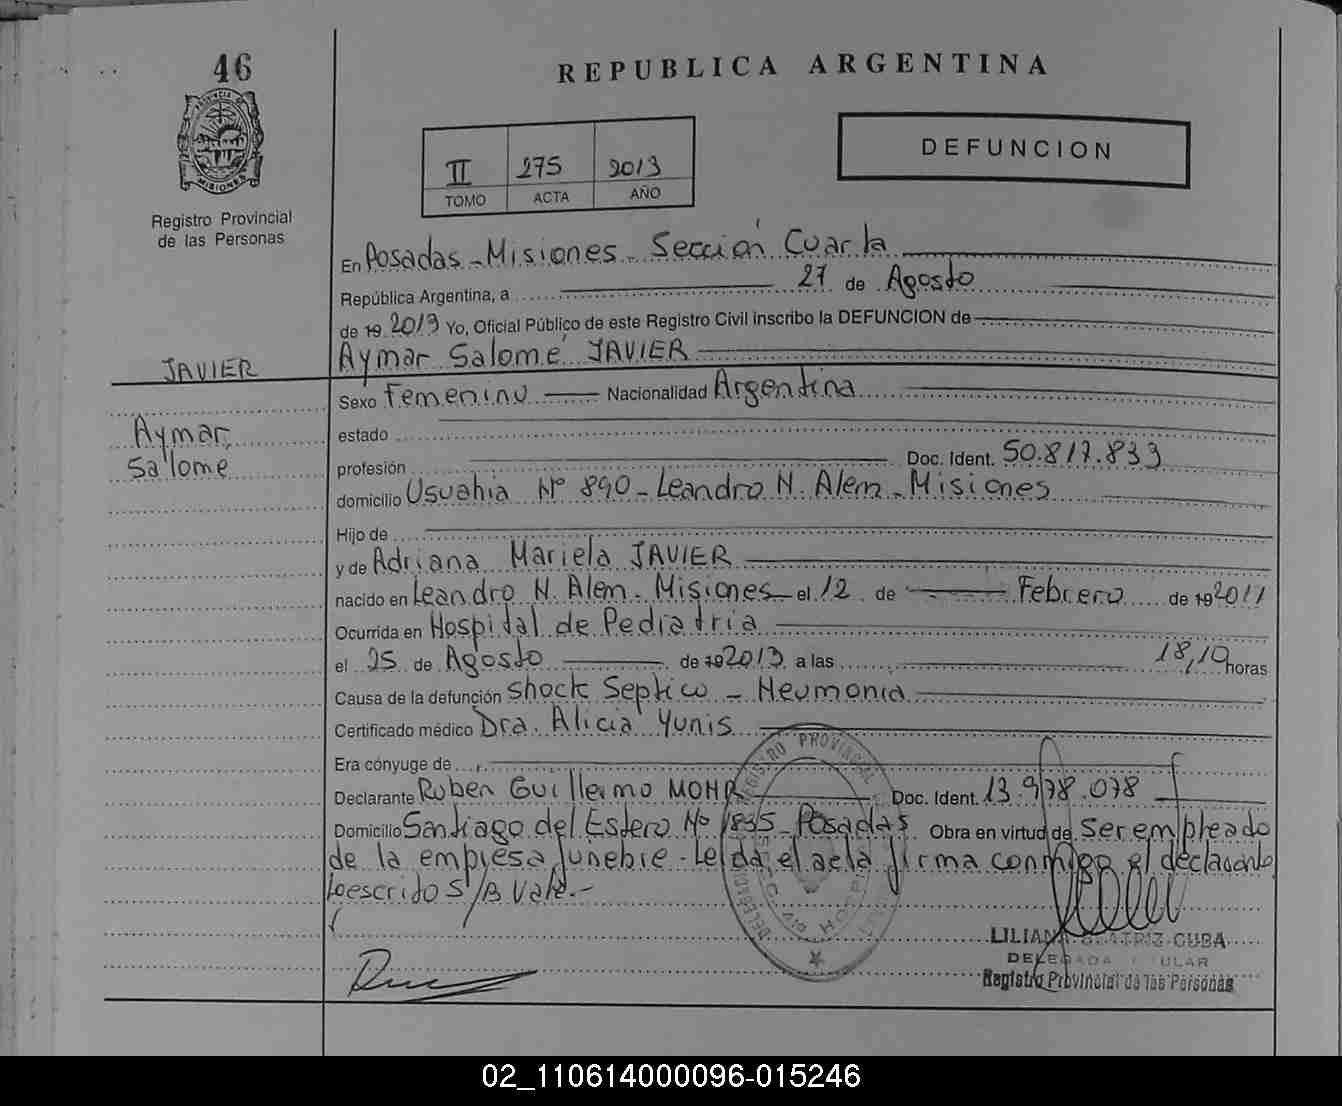 46
REPUBLICA ARGENTINA
PROVINCIA DE MISIONES
Registro Provincial
de las Personas
II 275 2013
TOMO ACTA AÑO
DEFUNCION
En Posadas - Misiones - Sección Cuarta
República Argentina, a 27 de Agosto
de 19 2013 Yo, Oficial Público de este Registro Civil inscribo la DEFUNCION de
JAVIER
Aymar Salomé JAVIER
Sexo Femenino Nacionalidad Argentina
Aymar
Salomé
estado
profesión Doc. Ident. 50.817.833
domicilio Usuahia Nº 890 - Leandro N. Alem - Misiones
Hijo de
y de Adriana Mariela JAVIER
nacido en Leandro N. Alem - Misiones el 12 de Febrero de 19 2011
Ocurrida en Hospital de Pediatria
el 25 de Agosto de 19 2013 a las 18,10 horas
Causa de la defunción Shock Septico - Neumonia
Certificado médico Dra. Alicia Yunis
Era cónyuge de
Declarante Ruben Guillermo MOHR Doc. Ident. 13.978.078
Domicilio Santiago del Estero Nº 1835 - Posadas Obra en virtud de ser empleado
de la empresa funebre - Leida el acta firma conmigo el declarante
loescrito S/B Vale.-
REGISTRO PROVINCIAL
LILIANA BEATRIZ CUBA
DELEGADA TITULAR
Registro Provincial de las Personas
02_110614000096-015246